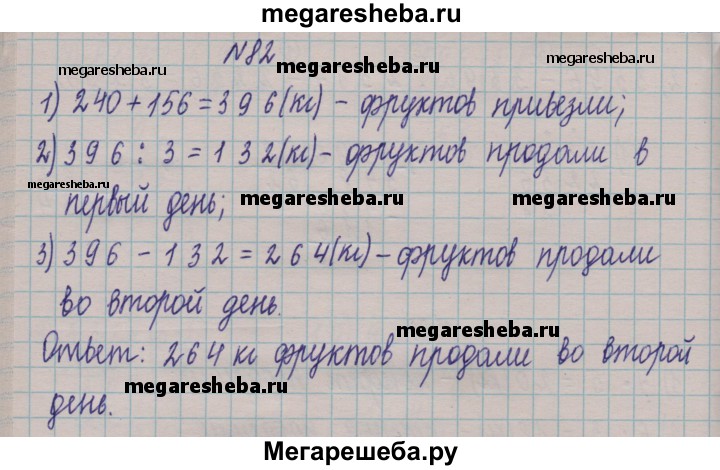 megaresheba.ru
№82
megaresheba.ru
megaresheba.ru
1) 240+156=396(кг) - фруктов привезли;
2) 396 : 3 = 132(кг) - фруктов продали в
megaresheba.ru
первый день;
megaresheba.ru
megaresheba.ru
3) 396 - 132 = 264(кг) - фруктов продали
во второй день.
megaresheba.ru
Ответ: 264 кг фруктов продали во второй
megaresheba.ru
день.
Мегарешеба.ру